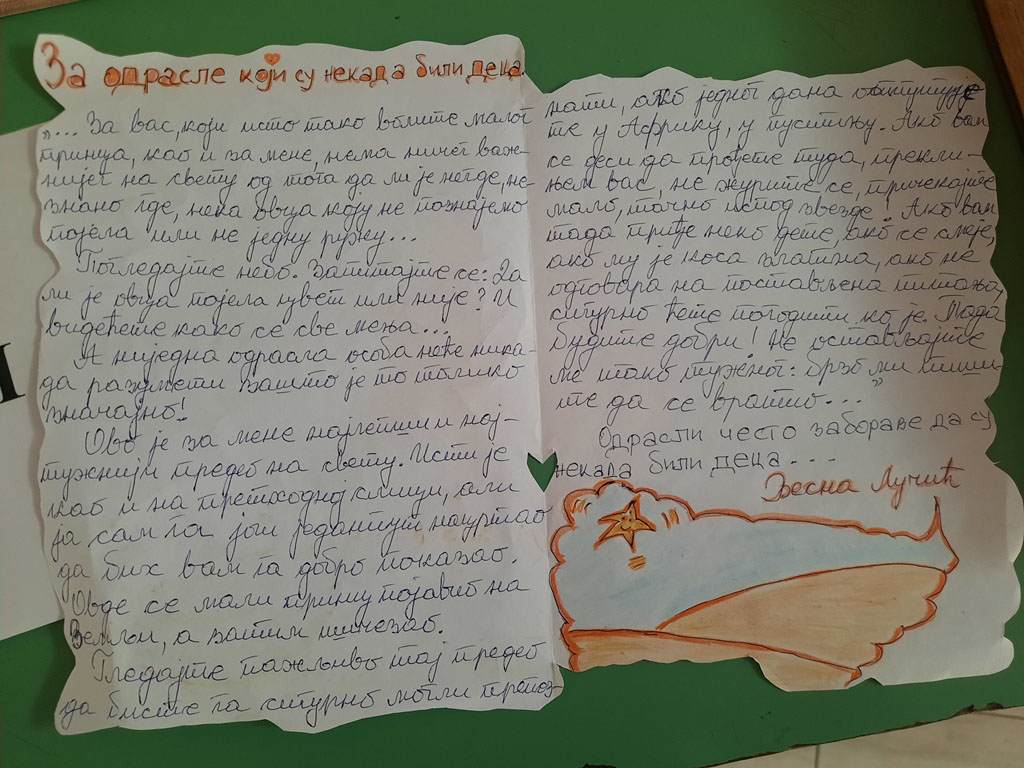 За одрасле који су некада били деца.
„... За вас, који исто тако волите малог
принца, као и за мене, нема ничег важ-
нијег на свету од тога да ли је негде, не-
знано где, нека овца коју не познајемо
појела или не једну ружу...
Погледајте небо. Запитајте се: Да
ли је овца појела цвет или није? И
видећете како се све мења...
А ниједна одрасла особа неће ника-
да разумети зашто је то толико
значајно!
Ово је за мене најлепши и нај-
тужнији предео на свету. Исти је
као и на претходној слици, али
ја сам га још једанпут нацртао
да бих вам га добро показао.
Овде се мали принц појавио на
Земљи, а затим ишчезао.
Гледајте пажљиво тај предео
да бисте га сигурно могли препоз-
нати, ако једног дана отпутује
те у Африку, у пустињу. Ако вам
се деси да прођете туда, преклι-
њем вас, не журите се, причекајте
мало, тачно испод звезде. Ако вам
тада приђе неко дете, ако се смеје,
ако му је коса златна, ако не
одговара на постављена питања,
сигурно ћете погодити ко је. Тада
будите добри! Не остављајте
ме тако тужног: брзо ми пиши-
те да се вратио..."
Одрасли често забораве да су
некада били деца...
Весна Лучић